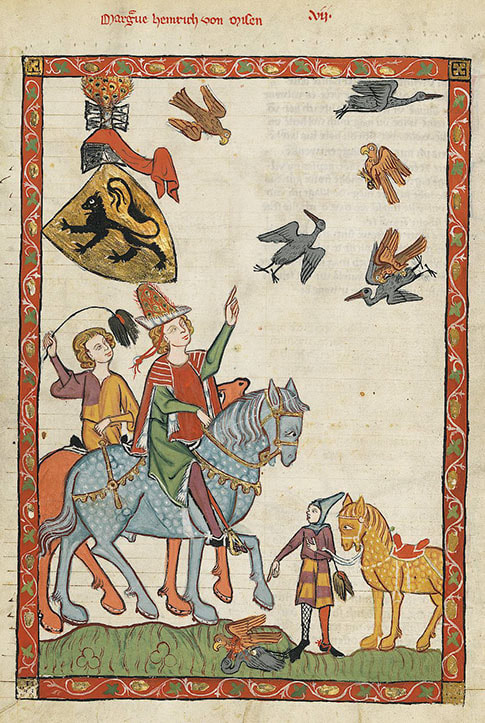 Margᵃue heinrich von misen vij.